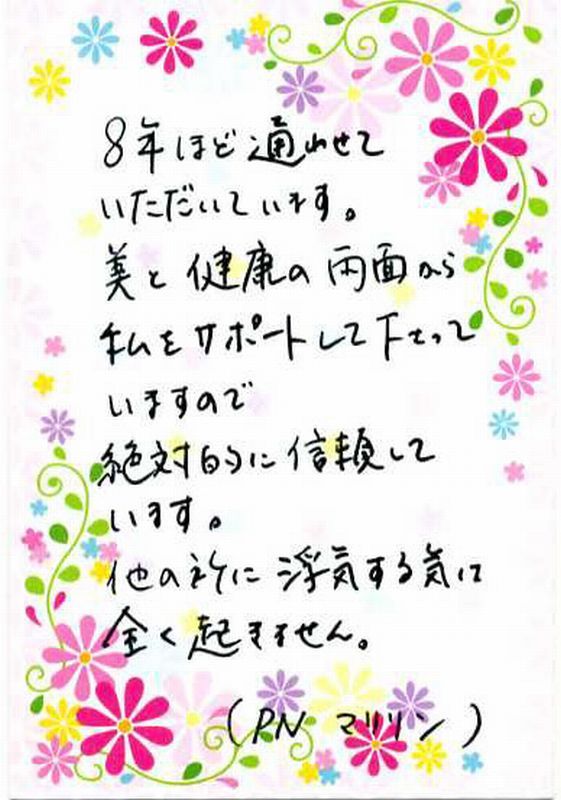 8年ほど通わせて
いただいています。
美と健康の両面から
私をサポートして下さって
いますので
絶対的に信頼して
います。
他の所に浮気する気は
全く起きません。
(PN マリリン)